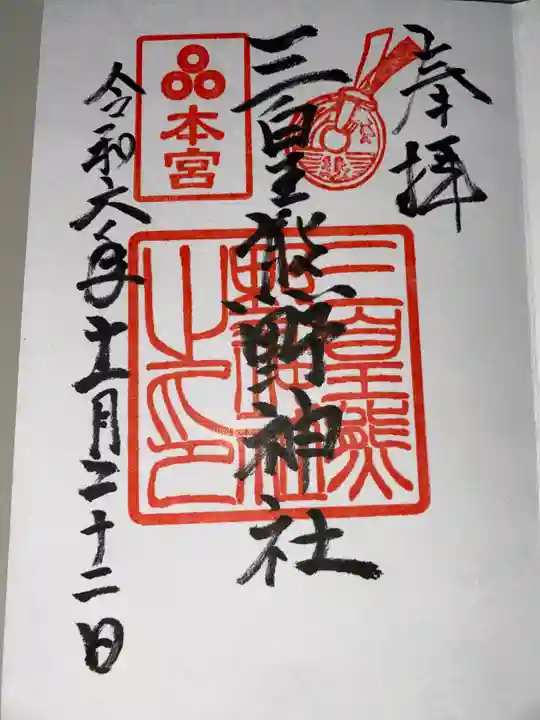 奉拝
三皇熊野神社
三皇熊
野神社
之印
本宮
令和六年十一月二十二日